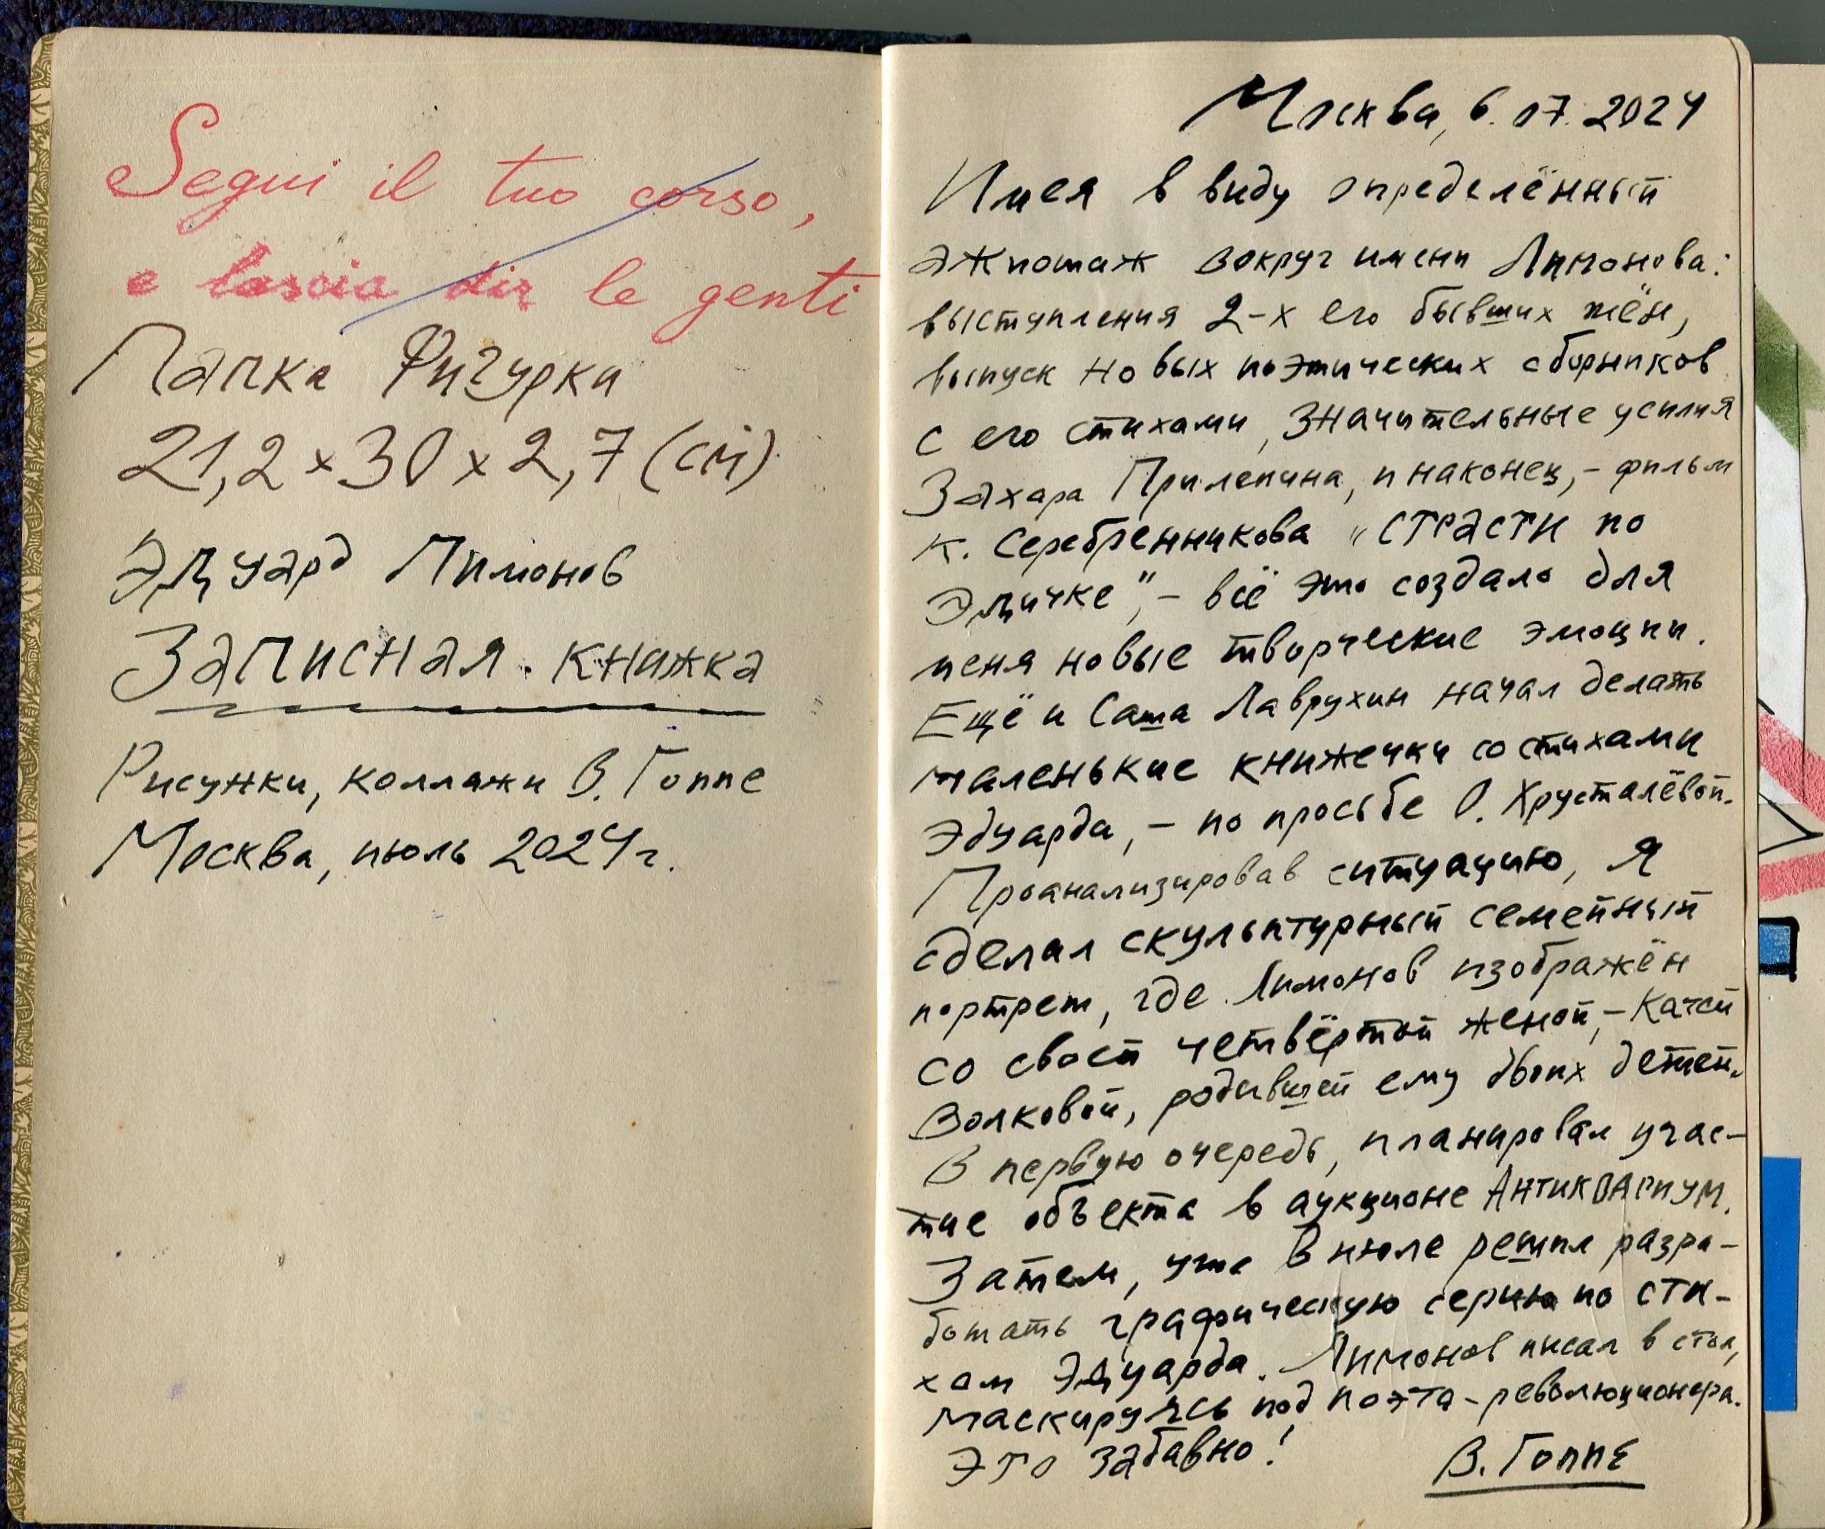 Segui il tuo corso,
e lascia dir le genti
Папка Фигурки
21,2 x 30 x 2,7 (см)
Эдуард Лимонов
Записная книжка
Рисунки, коллажи В. Гоппе
Москва, июль 2024 г.
Москва, 6.07.2024
Имея в виду определённый
эжпотаж вокруг имени Лимонова:
выступления 2-х его бывших жён,
выпуск новых поэтических сборников
с его стихами, значительные усилия
Захара Прилепина, и наконец, – фильм
К. Серебренникова „Страсти по
Эдичке", – всё это создало для
меня новые творческие эмоции.
Ещё и Саша Лаврухин начал делать
маленькие книжечки со стихами
Эдуарда, – по просьбе О. Хрусталёвой.
Проанализировав ситуацию, я
сделал скульптурный семейный
портрет, где Лимонов изображён
со своей четвёртой женой, – Катей
Волковой, родившей ему двоих детей.
В первую очередь, планировал учас-
тие объекта в аукционе Антиквариум.
Затем, уже в июле решил разра-
ботать графическую серию по сти-
хам Эдуарда. Лимонов писал в стол,
маскируясь под поэта-революционера.
Это забавно!
В. Гоппе